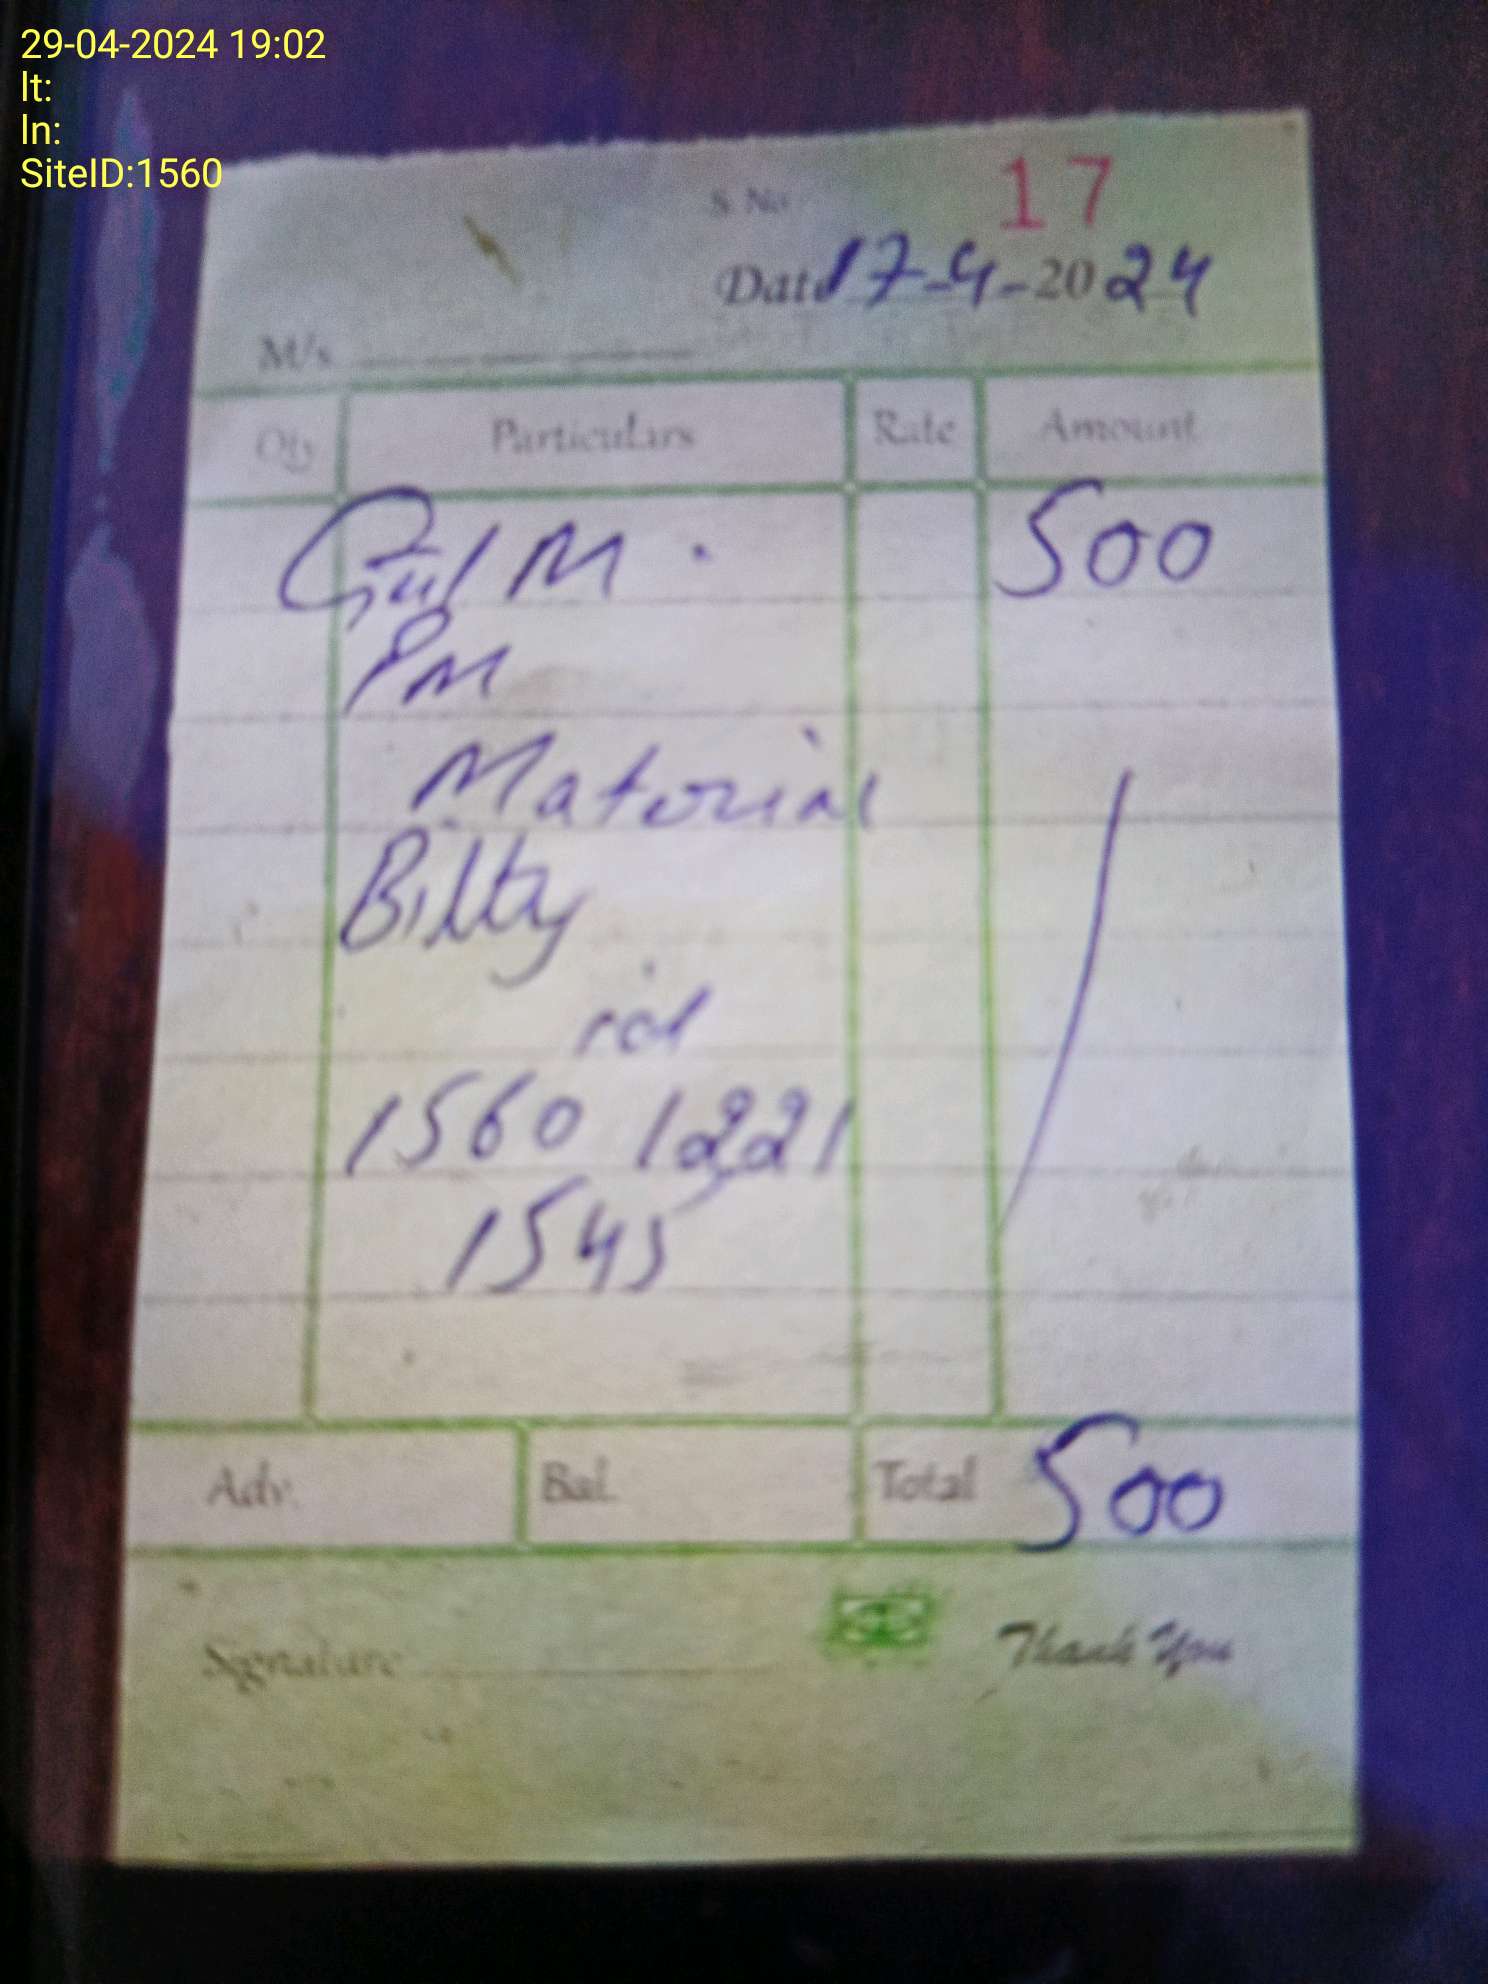 29-04-2024 19:02
lt:
ln:
SiteID:1560
S. No 17
Date 17-4-2024
M/s
Qty Particulars Rate Amount
Gul M. 500
PM
Material
Bilty
id
1560 1221
1545
Adv. Bal. Total 500
Signature Thank You